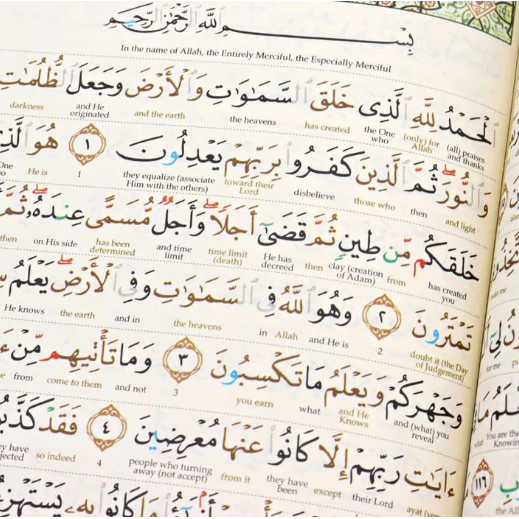 بِسْمِ اللَّهِ الرَّحْمَٰنِ الرَّحِيمِ
In the name of Allah, the Entirely Merciful, the Especially Merciful
الْحَمْدُ لِلَّهِ الَّذِي خَلَقَ السَّمَٰوَٰتِ وَالْأَرْضَ وَجَعَلَ الظُّلُمَٰتِ
(all) praises and thanks (only) for Allah the One who has created the heavens and the earth and He originated darkness
وَالنُّورَ ۖ ثُمَّ الَّذِينَ كَفَرُوا بِرَبِّهِمْ يَعْدِلُونَ ١ هُوَ
and light then those who disbelieve toward their Lord they equalize (associate Him with the others) 1 He is
خَلَقَكُم مِّن طِينٍ ثُمَّ قَضَىٰٓ أَجَلًا ۖ وَأَجَلٌ مُّسَمًّى عِندَهُۥ ۖ ثُمَّ
has created you from clay (creation of Adam) then He has decreed time limit (death) and time limit has been determined on His side then
تَمْتَرُونَ ٢ وَهُوَ اللَّهُ فِي السَّمَٰوَٰتِ وَفِي الْأَرْضِ ۖ يَعْلَمُ
doubt it (the Day of Judgement) 2 and He is Allah in the heavens and in the earth He knows
وَجَهْرَكُمْ وَيَعْلَمُ مَا تَكْسِبُونَ ٣ وَمَا تَأْتِيهِم مِّنْ
and (what) you reveal and He Knows what you earn 3 and not come to them from
ءَايَٰتِ رَبِّهِمْ إِلَّا كَانُوا عَنْهَا مُعْرِضِينَ ٤ فَقَدْ
their Lord except they have been from it people who turning away (not accept) 4 so indeed
١١٦